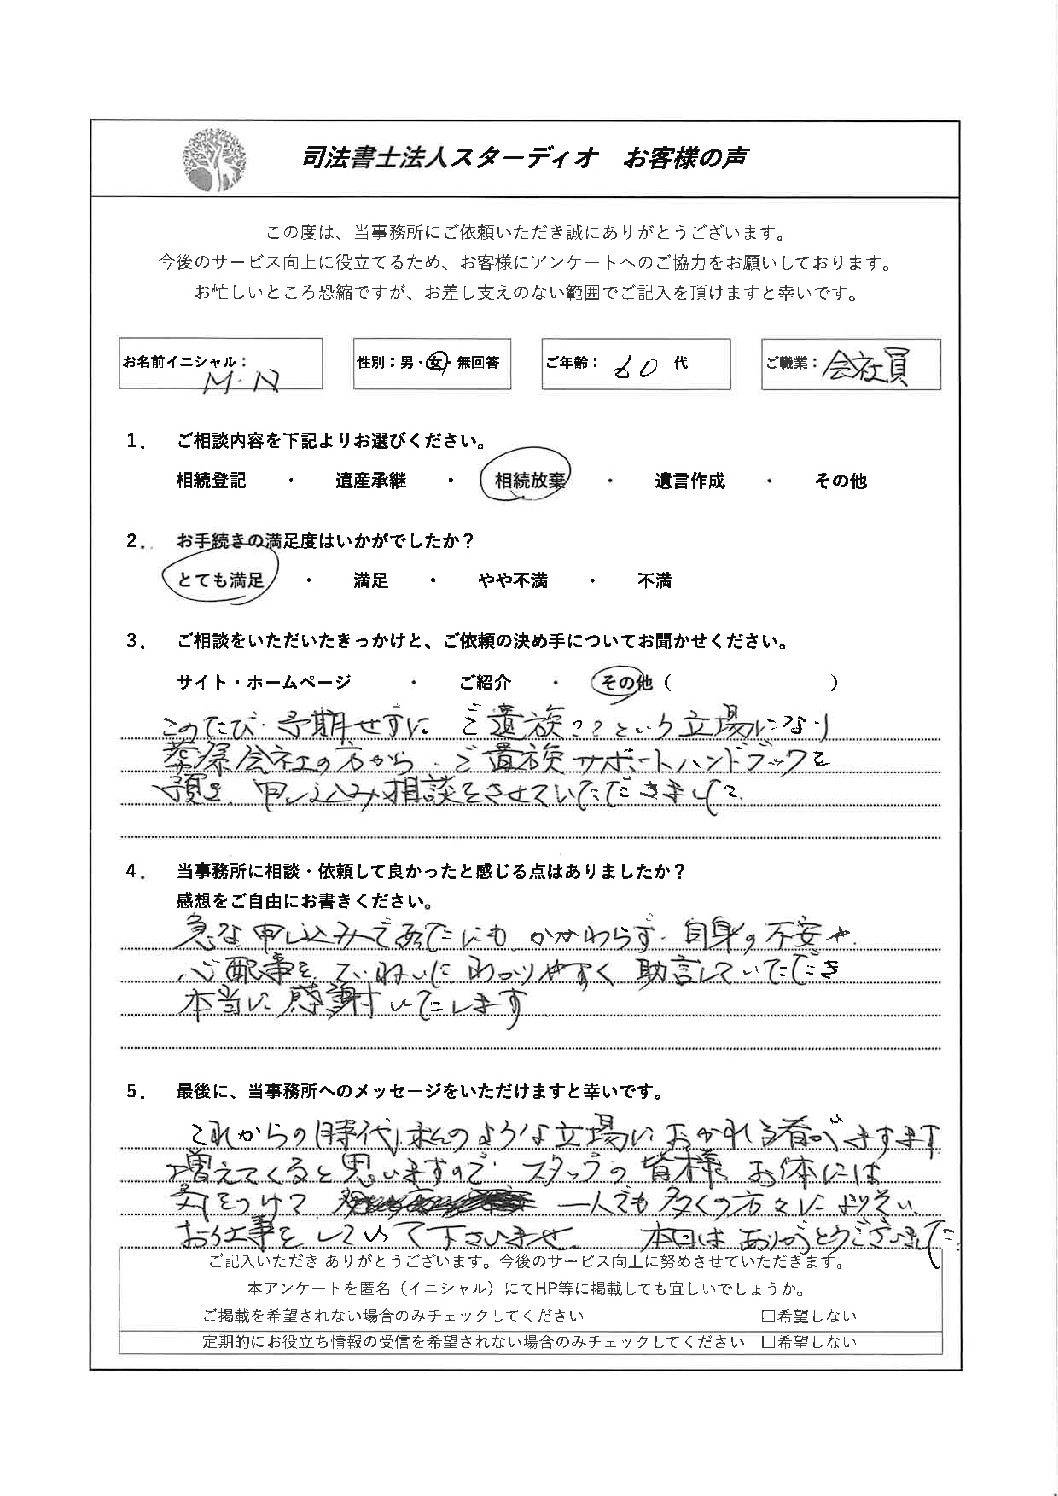 司法書士法人スターディオ　お客様の声
この度は、当事務所にご依頼いただき誠にありがとうございます。
今後のサービス向上に役立てるため、お客様にアンケートへのご協力をお願いしております。
お忙しいところ恐縮ですが、お差し支えのない範囲でご記入を頂けますと幸いです。
お名前イニシャル： M・N　性別：男・女・無回答　ご年齢： 60 代　ご職業：会社員
1．　ご相談内容を下記よりお選びください。
相続登記　・　遺産承継　・　相続放棄　・　遺言作成　・　その他
2．　お手続きの満足度はいかがでしたか？
とても満足　・　満足　・　やや不満　・　不満
3．　ご相談をいただいたきっかけと、ご依頼の決め手についてお聞かせください。
サイト・ホームページ　・　ご紹介　・　その他（　　　　　　　　）
このたび、予期せずに ご遺族??という立場になり
葬儀会社の方から、ご遺族サポートハンドブックを
頂き、申し込み相談をさせていただきまして
4．　当事務所に相談・依頼して良かったと感じる点はありましたか？
感想をご自由にお書きください。
急な申し込みであたにも かかわらず、自身の不安や、
心配事を ていねいに わかりやすく 助言していただき
本当に感謝いたします
5．　最後に、当事務所へのメッセージをいただけますと幸いです。
これからの時代、私のような立場に おかれる者が ますます
増えてくると思いますので、スタッフの皆様 お体には
気をつけて 一人でも多くの方々に よりそい
お仕事をしていて下さいませ。 本日は ありがとうございました。
ご記入いただき ありがとうございます。今後のサービス向上に努めさせていただきます。
本アンケートを匿名（イニシャル）にてHP等に掲載しても宜しいでしょうか。
ご掲載を希望されない場合のみチェックしてください　□希望しない
定期的にお役立ち情報の受信を希望されない場合のみチェックしてください　□希望しない